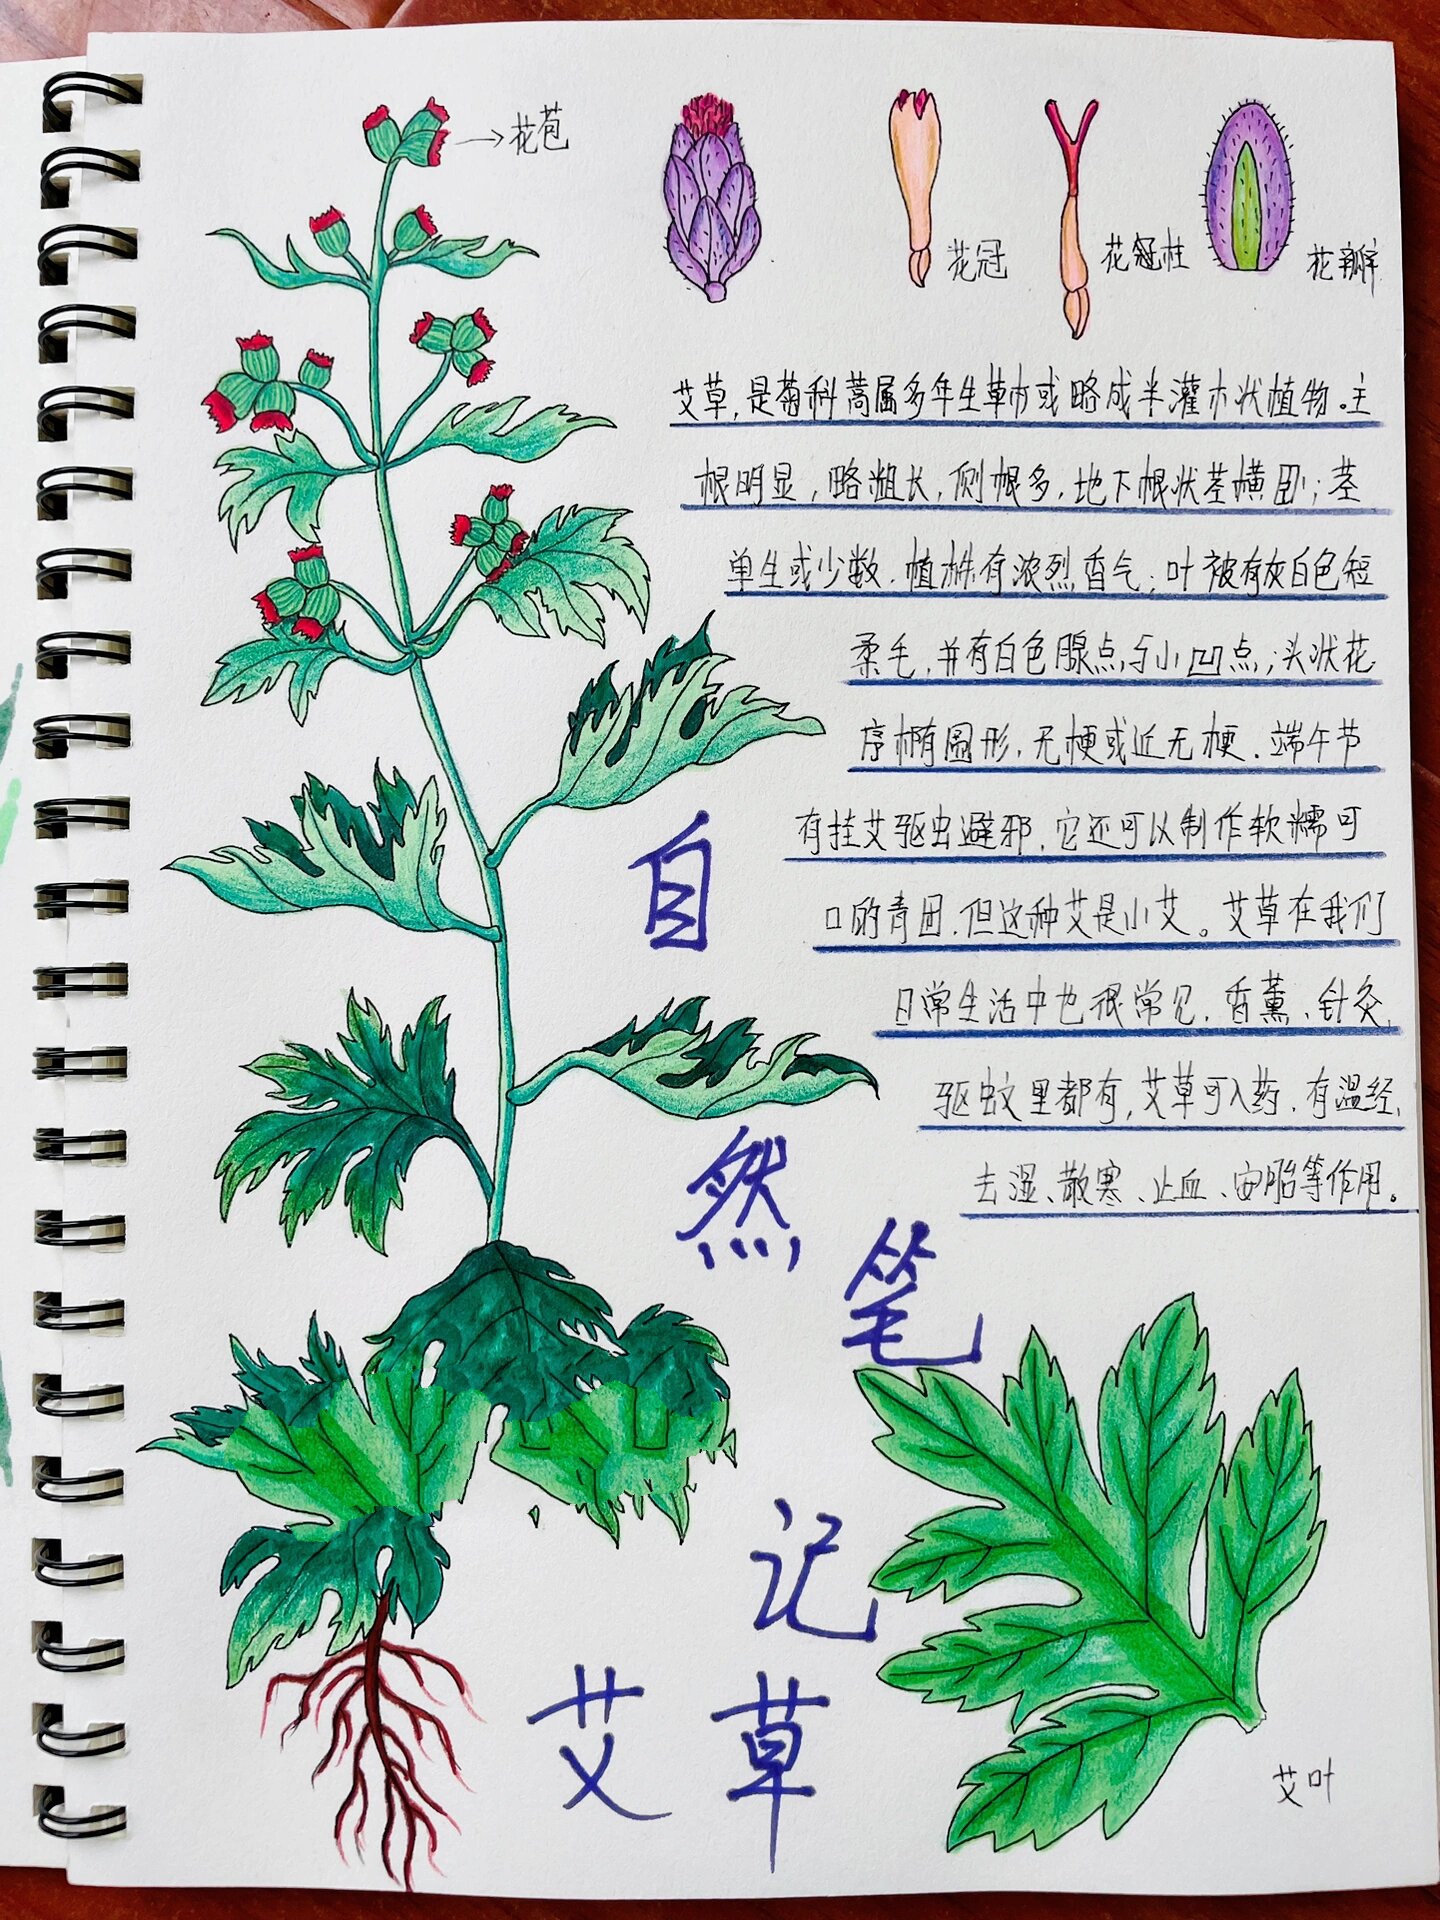 花苞
花冠
花冠柱
花瓣
艾草,是菊科蒿属多年生草本或略成半灌木状植物。主
根明显,略粗长,侧根多,地下根状茎横卧;茎
单生或少数,植株有浓烈香气;叶被有灰白色短
柔毛,并有白色腺点与小凹点;头状花
序椭圆形,无梗或近无梗.端午节
有挂艾驱虫避邪,它还可以制作软糯可
口的青团,但这种艾是小艾。艾草在我们
日常生活中也很常见,香薰、针灸,
驱蚊里都有,艾草可入药,有温经、
去湿、散寒、止血、安胎等作用。
自
然
笔
记
艾草
艾叶